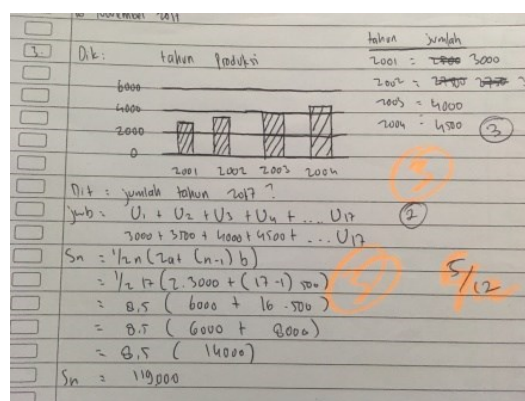 November 2019
3. Dik : tahun produksi
6000
4000
2000
0
2001 2002 2003 2004
tahun jumlah
2001 : 3000
2002 :
2003 = 4000
2004 : 4500
3
Dit : jumlah tahun 2017 ?
jwb = U1 + U2 + U3 + U4 + ... U17
2
3000 + 3500 + 4000 + 4500 + ... U17
Sn = 1/2 n (2a + (n-1) b)
= 1/2 17 (2.3000 + (17-1) 500)
5/12
= 8,5 ( 6000 + 16 . 500 )
= 8,5 ( 6000 + 8000 )
= 8,5 ( 14000 )
Sn = 119000